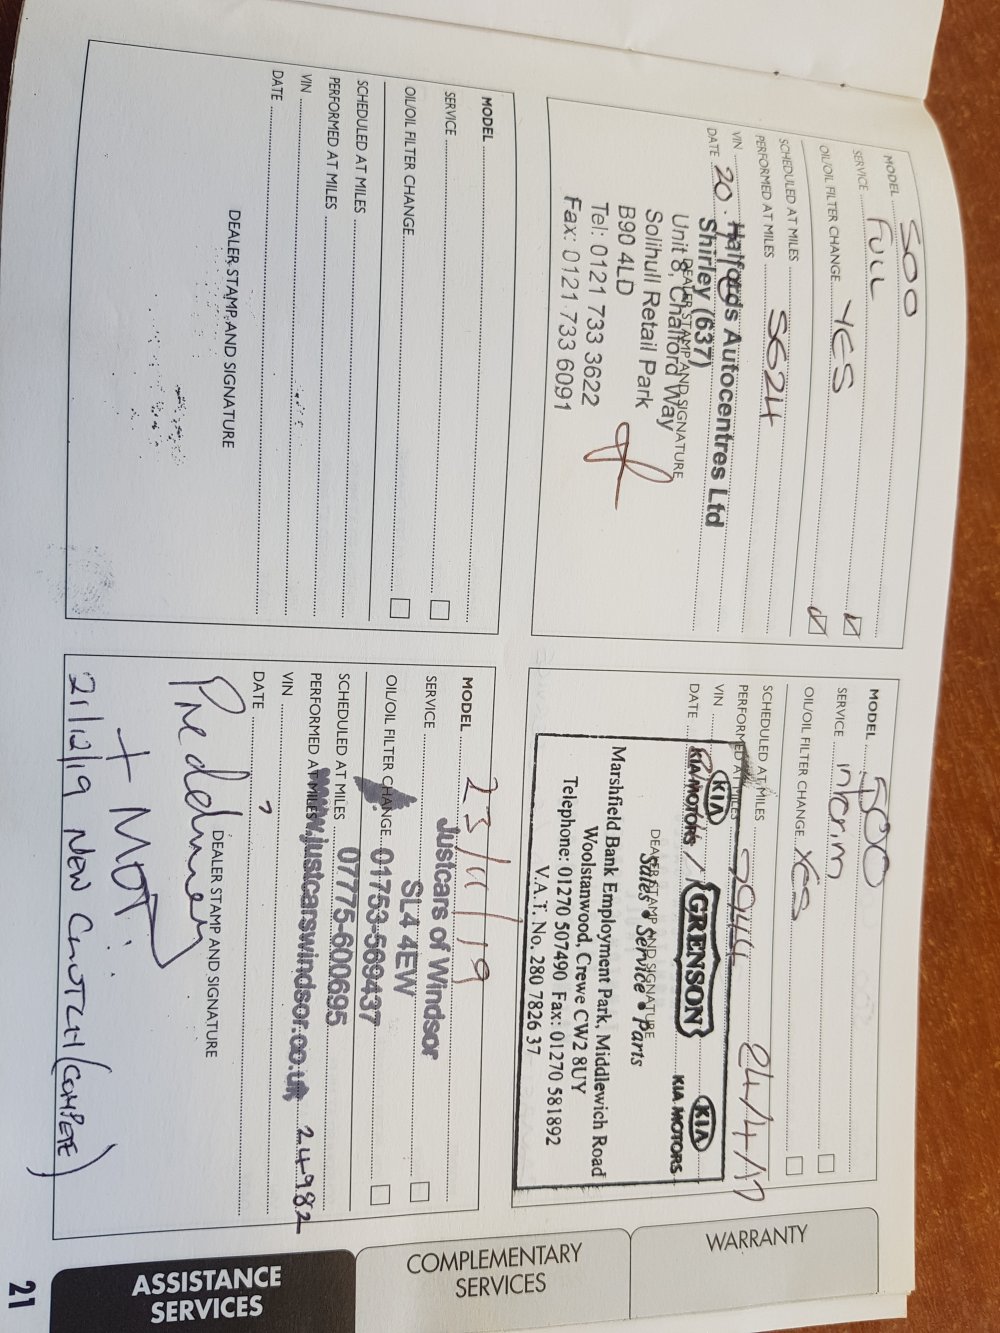 MODEL 500
SERVICE FULL
OIL/OIL FILTER CHANGE YES
SCHEDULED AT MILES
PERFORMED AT MILES 5624
VIN
DATE 20.
DEALER STAMP AND SIGNATURE
Halfords Autocentres Ltd
Shirley (637)
Unit 8, Chalford Way
Solihull Retail Park
B90 4LD
Tel: 0121 733 3622
Fax: 0121 733 6091
MODEL 500
SERVICE interim
OIL/OIL FILTER CHANGE YES
SCHEDULED AT MILES
PERFORMED AT MILES 9944 24/4/17
VIN
DATE
DEALER STAMP AND SIGNATURE
KIA GRENSON KIA
KIA MOTORS KIA MOTORS
Sales • Service • Parts
Marshfield Bank Employment Park, Middlewich Road
Woolstanwood, Crewe CW2 8UY
Telephone: 01270 507490 Fax: 01270 581892
V.A.T. No. 280 7826 37
MODEL
SERVICE
OIL/OIL FILTER CHANGE
SCHEDULED AT MILES
PERFORMED AT MILES
VIN
DATE
DEALER STAMP AND SIGNATURE
MODEL 23/11/19
SERVICE
OIL/OIL FILTER CHANGE
SCHEDULED AT MILES
PERFORMED AT MILES 24982
VIN
DATE
DEALER STAMP AND SIGNATURE
Justcars of Windsor
SL4 4EW
01753-569437
07775-600695
www.justcarswindsor.co.uk
+ MOT
21/12/19 NEW CLUTCH (COMPLETE)
WARRANTY
COMPLEMENTARY
SERVICES
ASSISTANCE
SERVICES
21